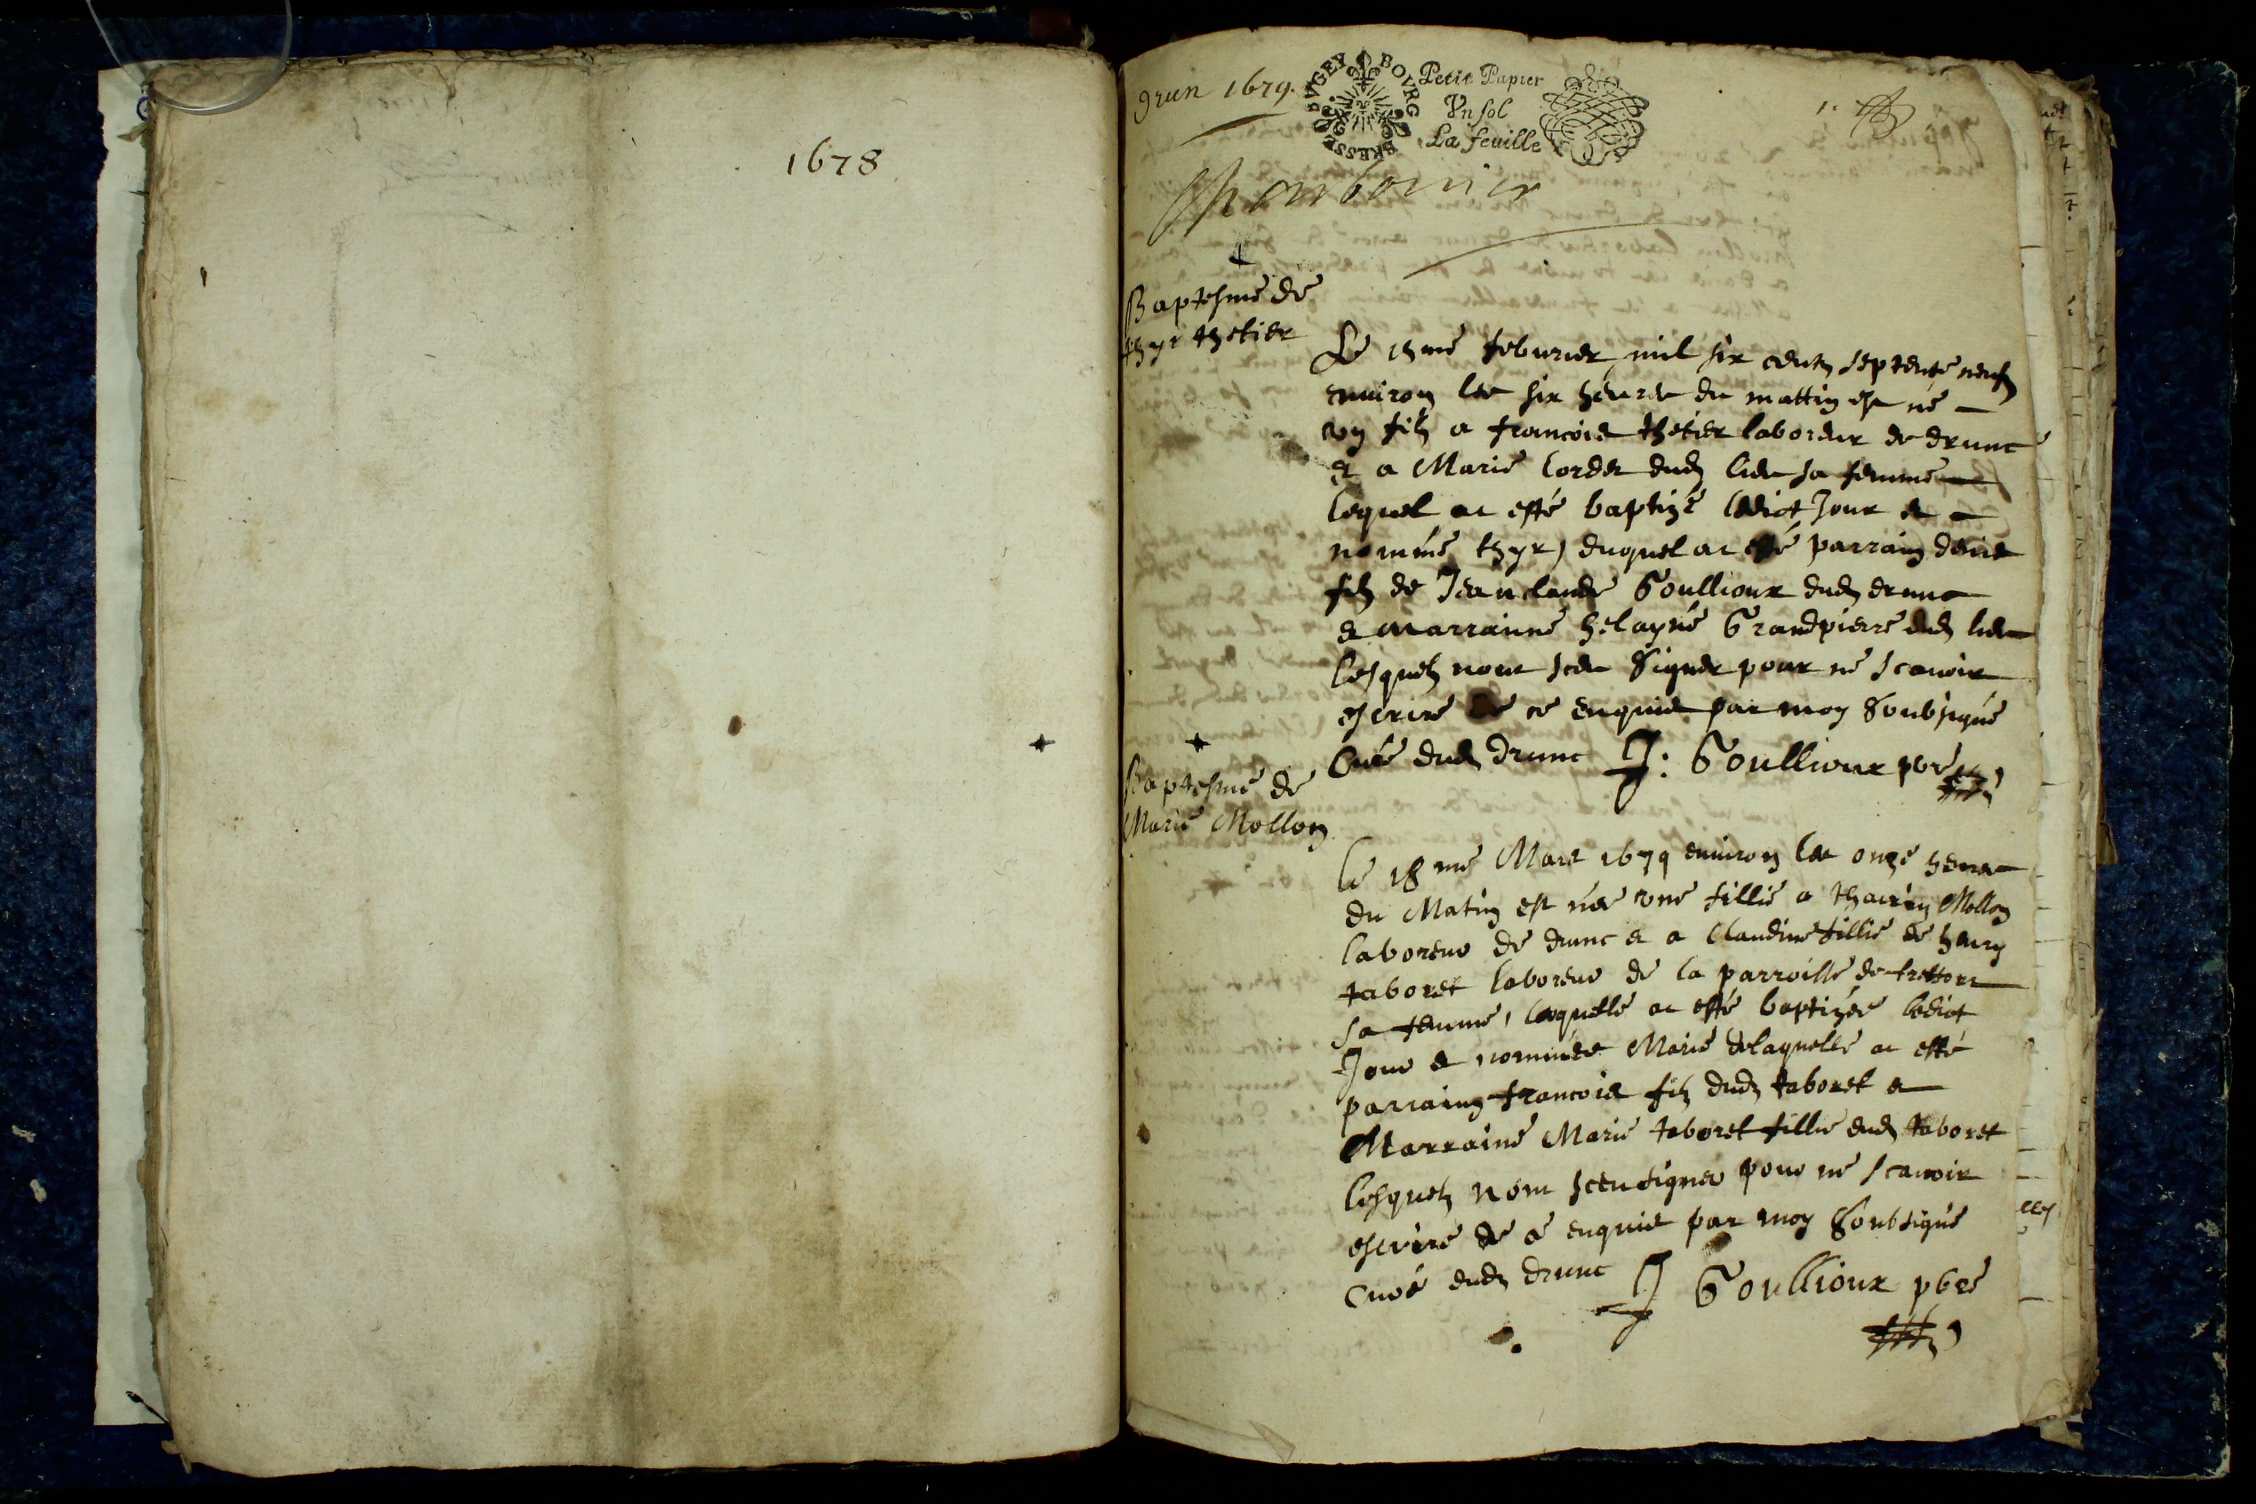 1678
drun 1679.
BRESSE BVGEY BOVRG
Petit Papier
Vn sol
La feuille
1.
Baptesme de
thyr thetier
Le 15me feburier mil six centz septente neufz
enuiron les six heures du mattin est né
vn filz a francois thetier laboreur de drunc
et a Marie Cordet dudt lieu sa femme
lequel at esté baptizé ledict Jour et
nommé thyr, duquel at esté parrain denis
filz de Jean claude Goullioux dudt drunc
et marrainne helayne Grandpierre dudt lieu
lesquelz nont sceu signer pour ne scauoir
escrire de ce enquis par moy soubsigné
Curé dudt drunc J: Goullioux pbre
Baptesme de
Marie Mollon
Le 18me Mars 1679 enuiron les onze heures
du Matin est née vne fillie a thaurin Mollon
laboreur de drunc et a Claudine fillie de henry
taboret laboreur de la parroisse de trettort
sa femme, laquelle at esté baptizée ledict
Jour et nommée Marie delaquelle at esté
parraing francois filz dudt taboret et
Marraine Marie taboret fillie dudt taboret
lesquelz nont sceu signer pour ne scauoir
escrire de ce enquis par moy soubsigné
curé dudt drunc J Goullioux pbre